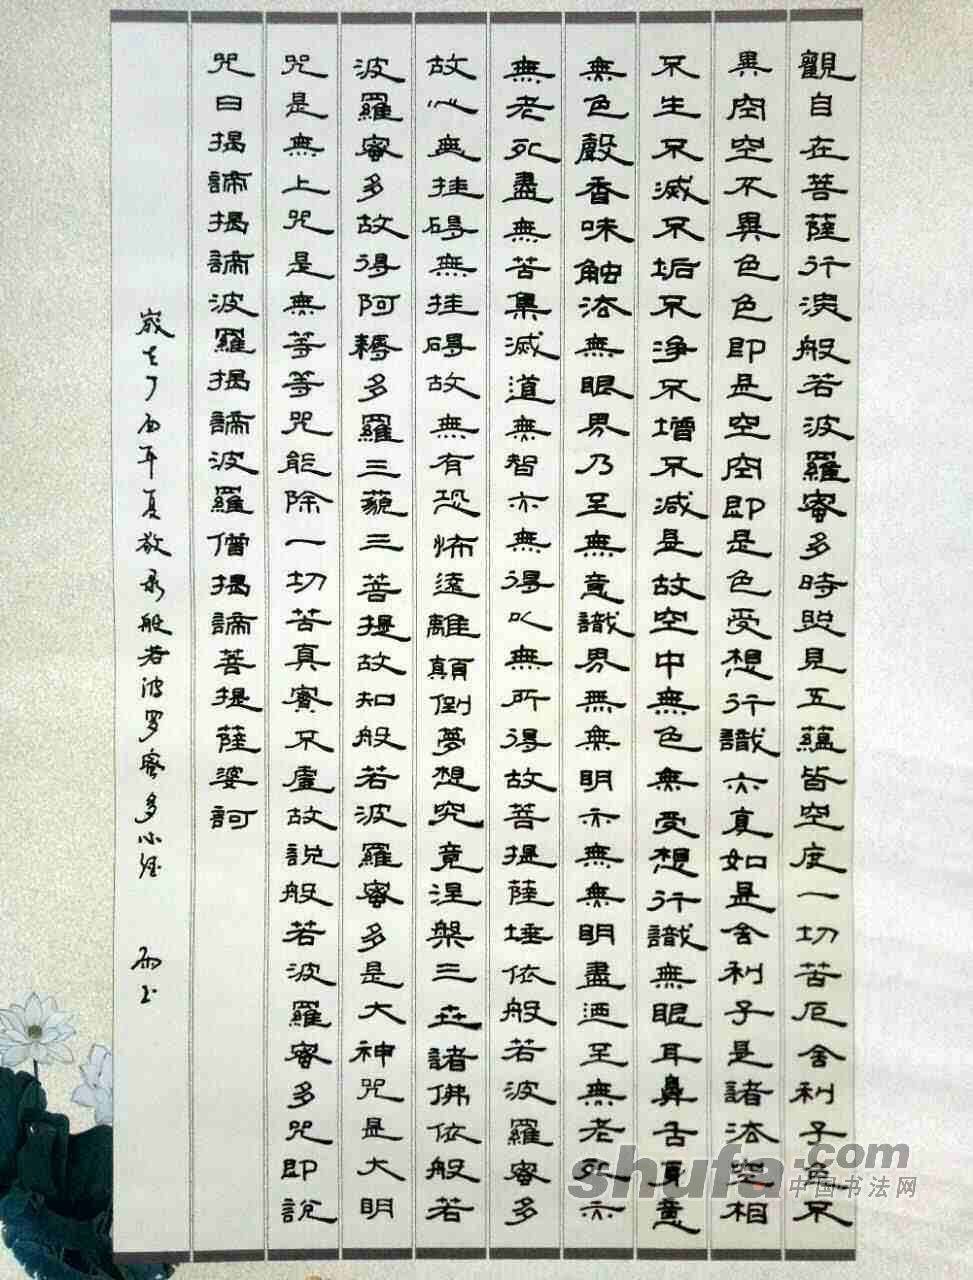 觀自在菩薩行深般若波羅蜜多時照見五蘊皆空度一切苦厄舍利子色不
異空空不異色色即是空空即是色受想行識亦复如是舍利子是諸法空相
不生不滅不垢不淨不增不減是故空中無色無受想行識無眼耳鼻舌身意
無色聲香味觸法無眼界乃至無意識界無無明亦無無明盡迺至無老死亦
無老死盡無苦集滅道無智亦無得以無所得故菩提薩埵依般若波羅蜜多
故心無挂碍無挂碍故無有恐怖遠離顛倒夢想究竟涅槃三世諸佛依般若
波羅蜜多故得阿耨多羅三藐三菩提故知般若波羅蜜多是大神咒是大明
咒是無上咒是無等等咒能除一切苦真實不虛故說般若波羅蜜多咒即說
咒曰揭諦揭諦波羅揭諦波羅僧揭諦菩提薩婆訶
歲在丁酉年夏敬录般若波罗蜜多心经 雨书
shufa.com
中国书法网